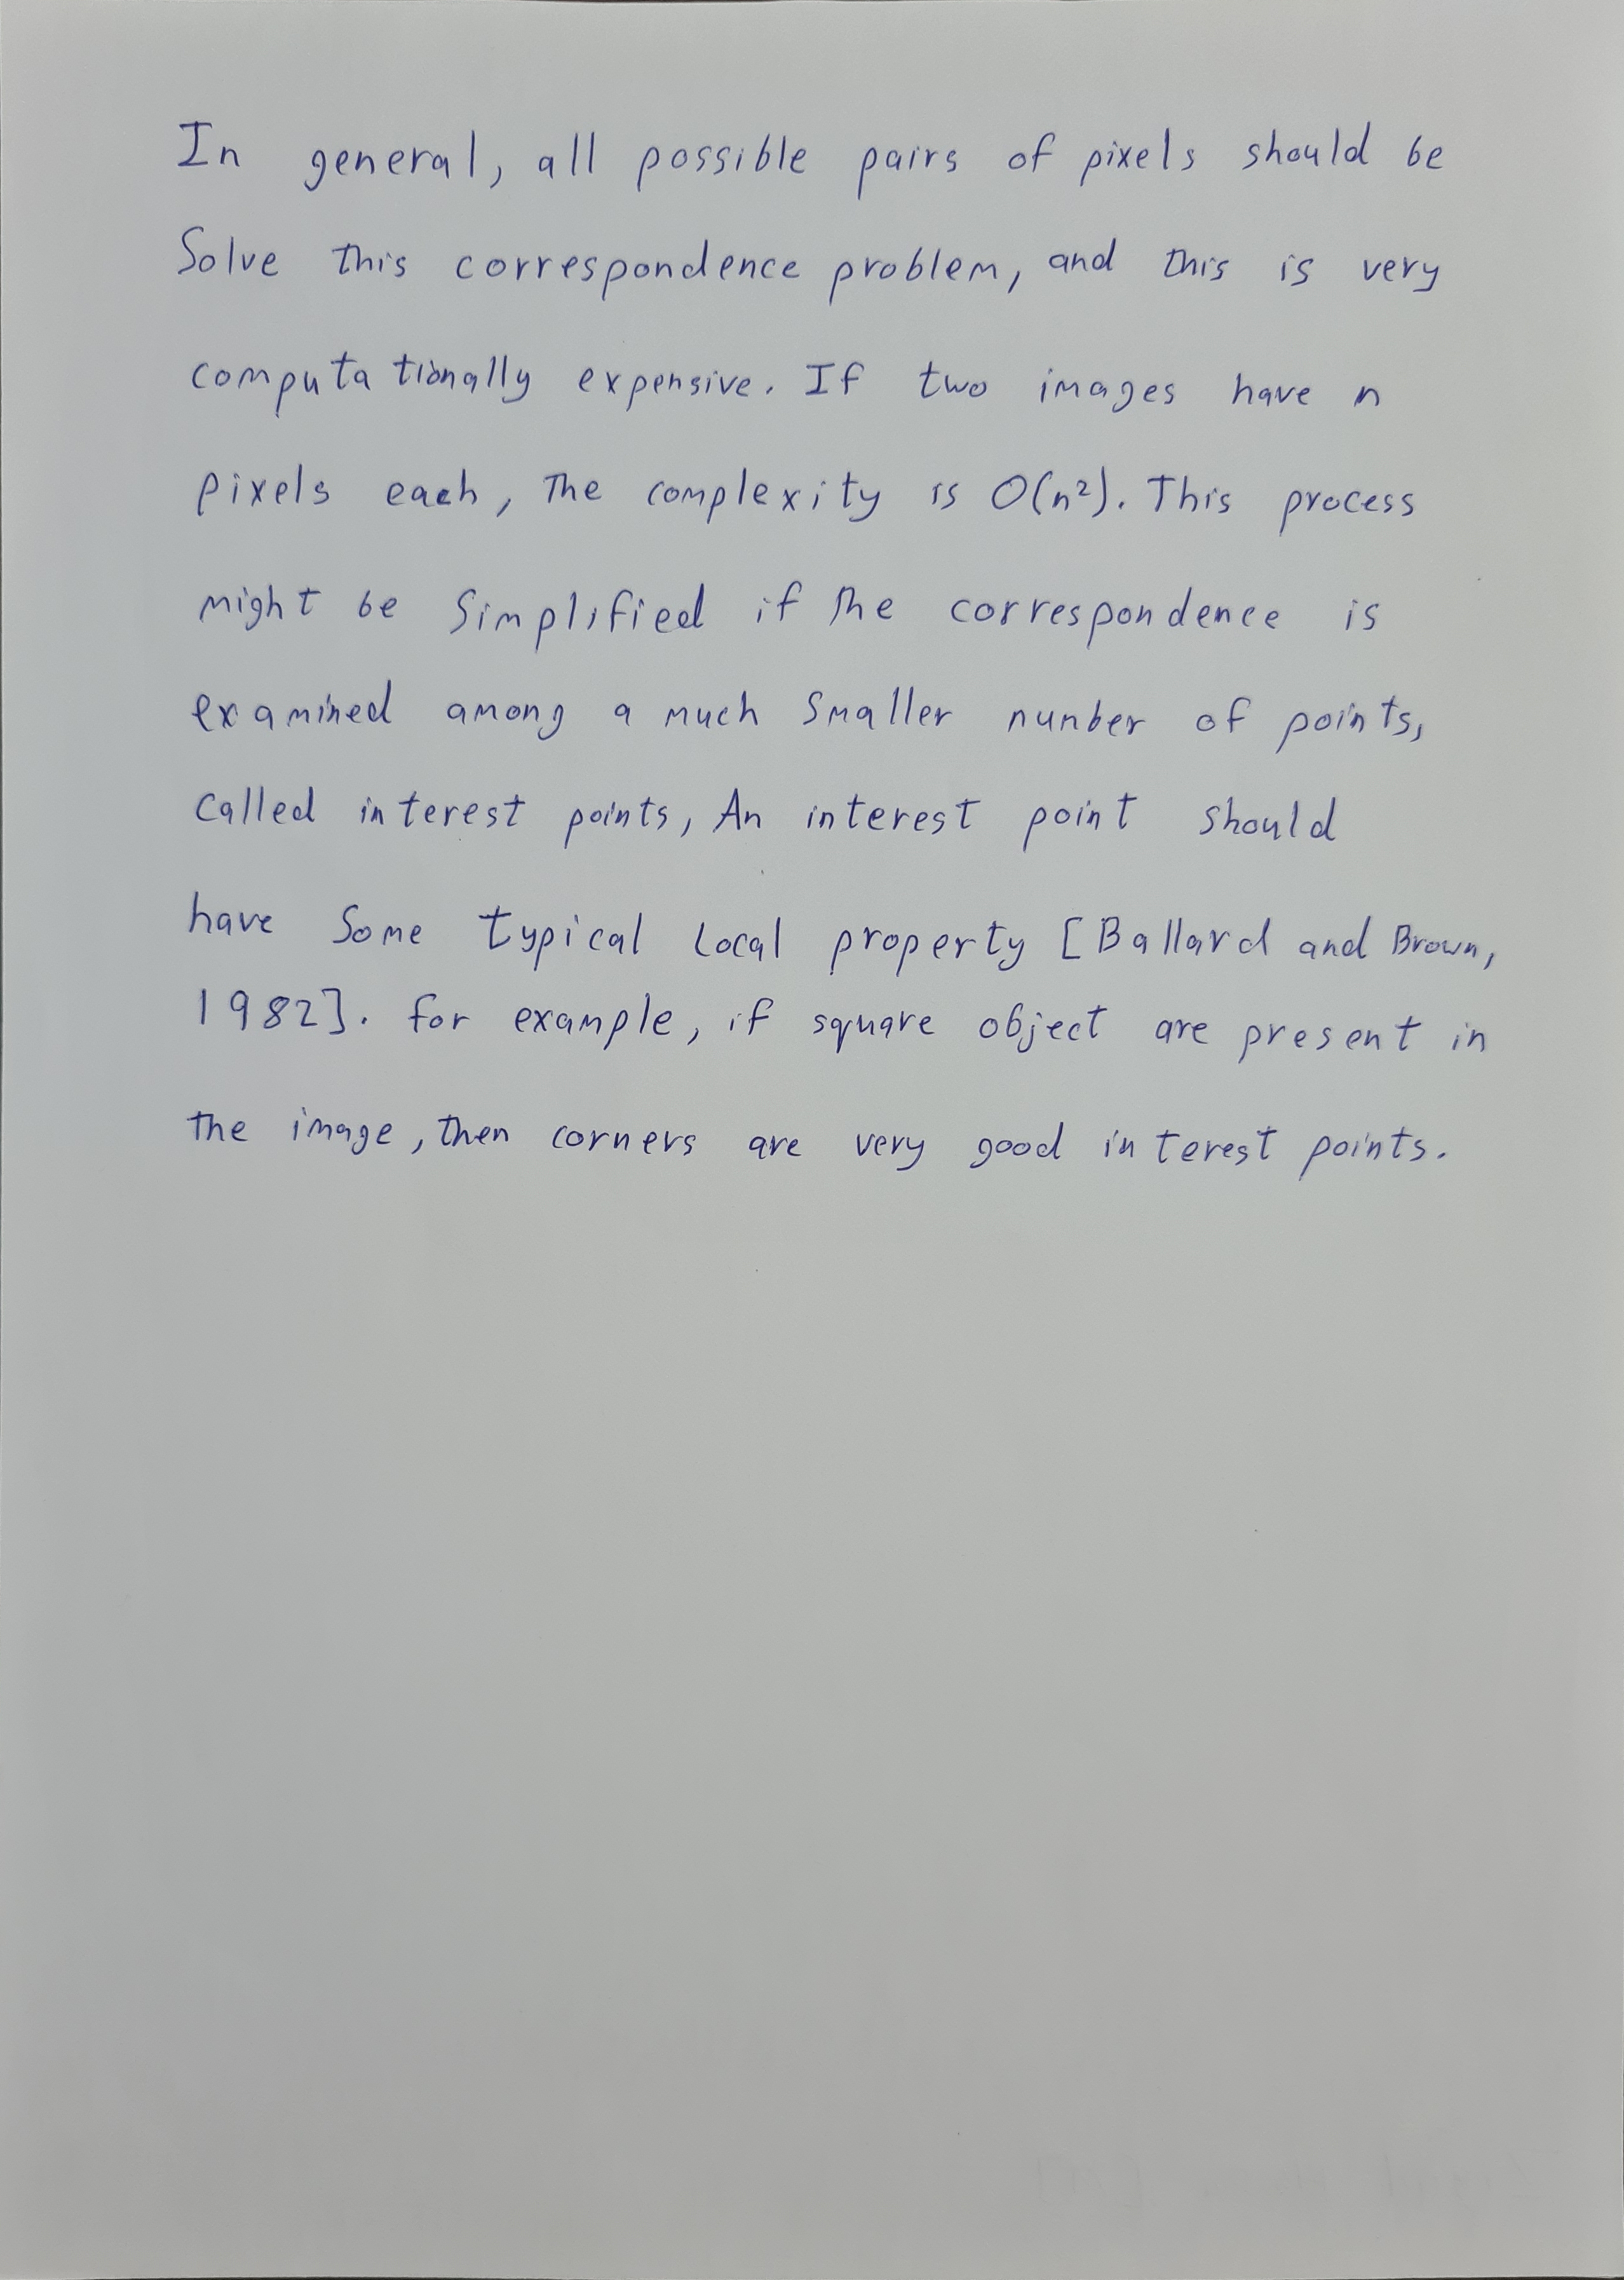 In general, all possible pairs of pixels should be
Solve this correspondence problem, and this is very
computationally expensive. If two images have n
pixels each, The complexity is O(n²). This process
might be Simplified if the correspondence is
examined among a much smaller nunber of points,
called interest points, An interest point should
have Some typical Local property [Ballard and Brown,
1982]. for example, if square object are present in
the image, then corners are very good interest points.